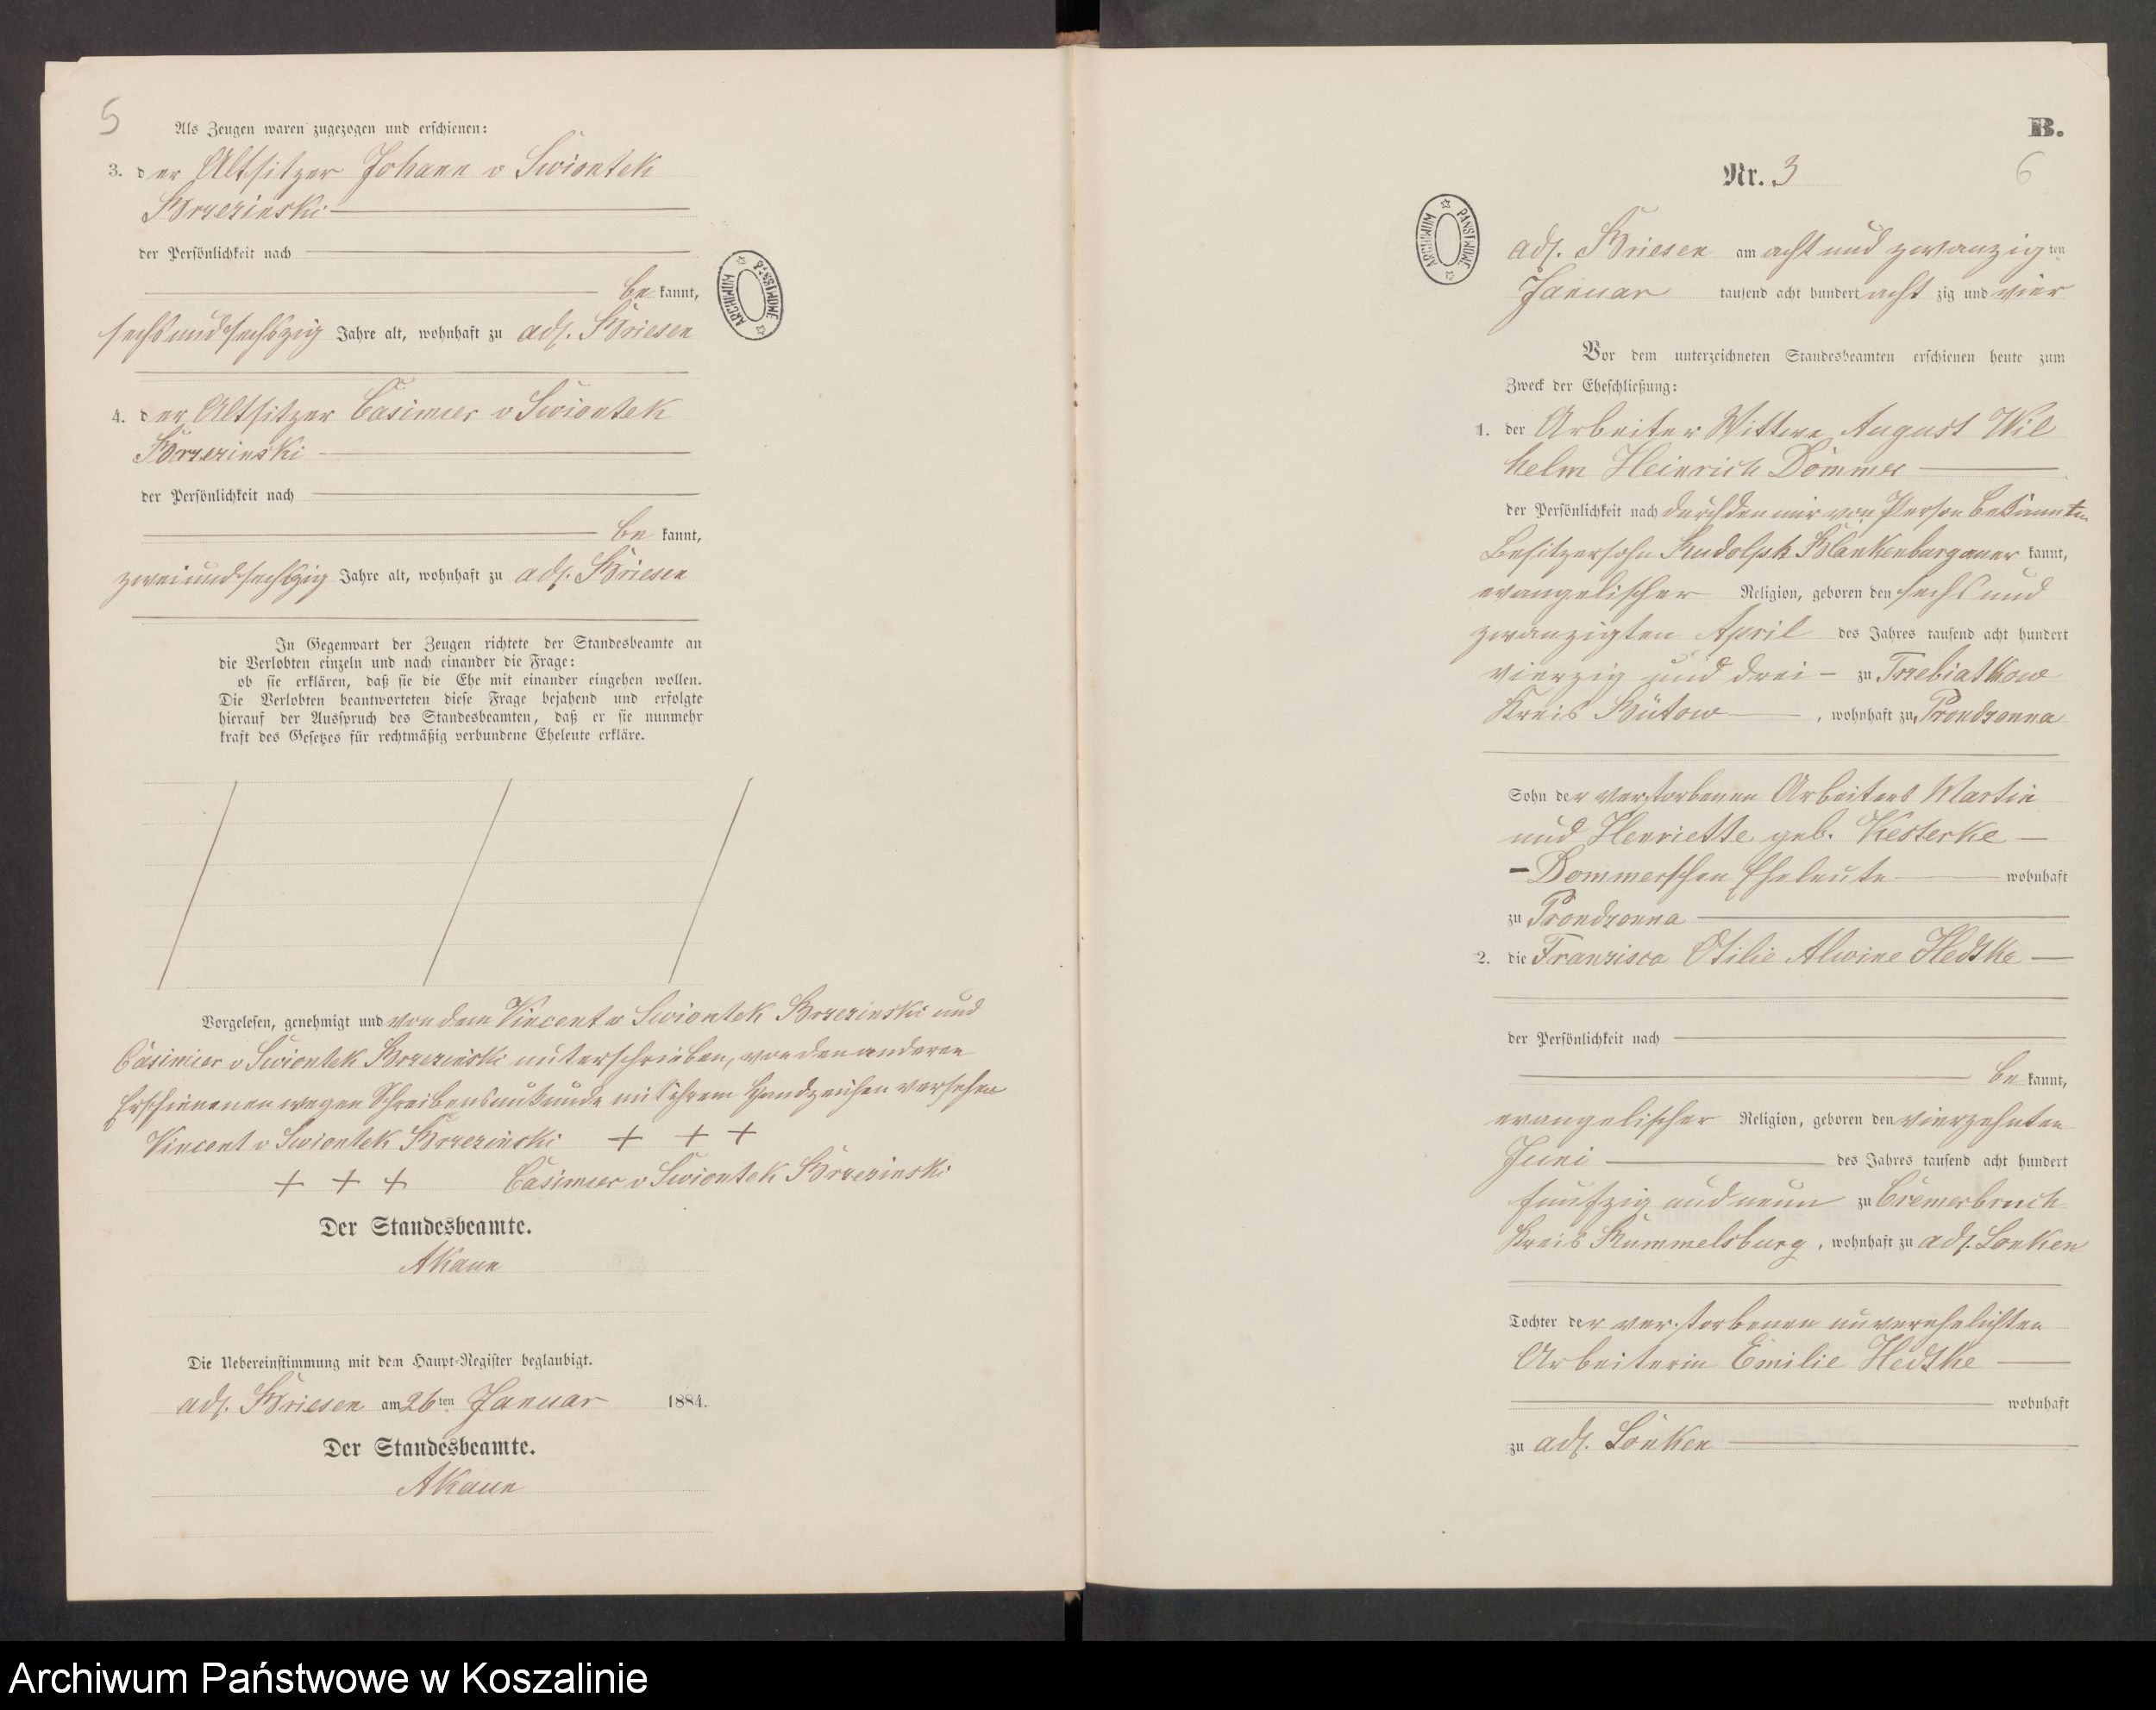 5
Als Zeugen waren zugezogen und erschienen:
3. der Altsitzer Johann v Swiontek
Brzezinski
der Persönlichkeit nach
be kannt,
sechs und sechszig Jahre alt, wohnhaft zu adl. Briesen
4. der Altsitzer Casimier v Swiontek
Brzezinski
der Persönlichkeit nach
be kannt,
zwei und sechszig Jahre alt, wohnhaft zu adl. Briesen
In Gegenwart der Zeugen richtete der Standesbeamte an
die Verlobten einzeln und nach einander die Frage:
ob sie erklären, daß sie die Ehe mit einander eingehen wollen.
Die Verlobten beantworteten diese Frage bejahend und erfolgte
hierauf der Ausspruch des Standesbeamten, daß er sie nunmehr
kraft des Gesetzes für rechtmäßig verbundene Eheleute erkläre.
Vorgelesen, genehmigt und von dem Vincent v Swiontek Brzezinski und
Casimier v Swiontek Brzezinski unterschrieben, von den anderen
Erschienenen wegen Schreibensunkunde mit ihrem Handzeichen versehen
Vincent v Swiontek Brzezinski + + +
+ + + Casimier v Swiontek Brzezinski
Der Standesbeamte.
AKaun
Die Uebereinstimmung mit dem Haupt-Register beglaubigt.
adl. Briesen am 26ten Januar 1884.
Der Standesbeamte.
AKaun
ARCHIWUM PAŃSTWOWE
B.
Nr. 3
6
ARCHIWUM PAŃSTWOWE
adl. Briesen am acht und zwanzig ten
Januar tausend acht hundert acht zig und vier
Vor dem unterzeichneten Standesbeamten erschienen heute zum
Zweck der Eheschließung:
1. der Arbeiter Wittwer August Wil
helm Heinrich Dommer
der Persönlichkeit nach durch den mir von Person bekannten
Besitzersohn Rudolph Blankenburg aner kannt,
evangelischer Religion, geboren den sechs und
zwanzigten April des Jahres tausend acht hundert
vierzig und drei zu Trzebiatkow
Kreis Bütow, wohnhaft zu Prondzonna
Sohn der verstorbenen Arbeiters Martin
und Henriette geb. Kesterke
Dommerschen Eheleute wohnhaft
zu Prondzonna
2. die Franzisca Otilie Alwine Hedtke
der Persönlichkeit nach
be kannt,
evangelischer Religion, geboren den vierzehnten
Juni des Jahres tausend acht hundert
funfzig und neun zu Cremerbruch
Kreis Rummelsburg, wohnhaft zu adl. Lonken
Tochter der verstorbenen unverehelichten
Arbeiterin Emilie Hedtke
wohnhaft
zu adl. Lonken
Archiwum Państwowe w Koszalinie